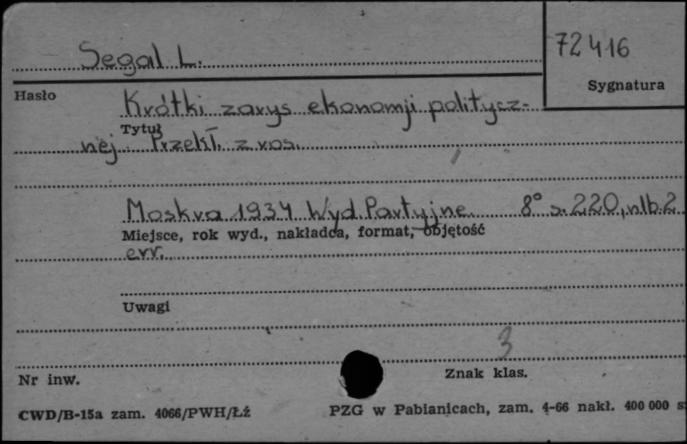 72416
Segal L.
Sygnatura
Hasło
Krótki zarys ekonomji politycz-
Tytuł
nej. Przekł. z ros.
Moskva 1934 Wyd. Partyjne. 8° s. 220, nlb. 2
Miejsce, rok wyd., nakładca, format, objętość
err.
Uwagi
3
Nr inw.
Znak klas.
CWD/B-15a zam. 4066/PWH/Łź
PZG w Pabianicach, zam. 4-66 nakł. 400 000 s